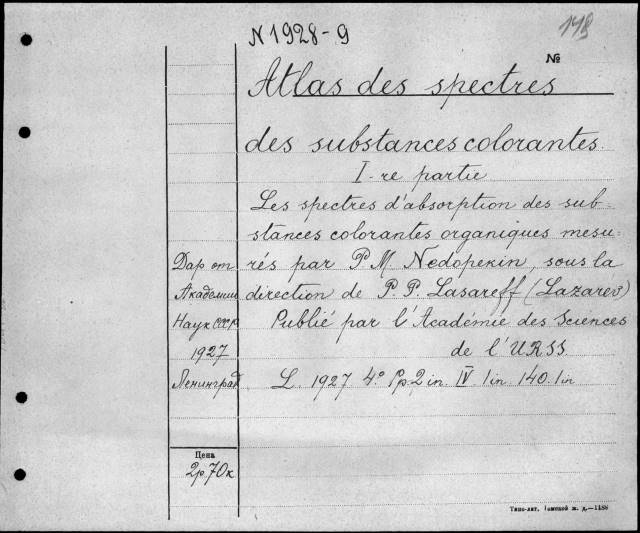 N 1928-9
148
№
Atlas des spectres
des substances colorantes.
I-re partie
Les spectres d'absorption des sub-
stances colorantes organiques mesu-
rés par P. M. Nedopekin, sous la
direction de P. P. Lasareff (Lazarev)
Publié par l'Académie des Sciences
de l'URSS.
L. 1927 4° Pp. 2 in. IV. 1 in. 140. 1 in
Дар от
Академии
Наук СССР
1927
Ленинград
Цена
2р.70к
Типо-лит. Томской ж. д.—1188